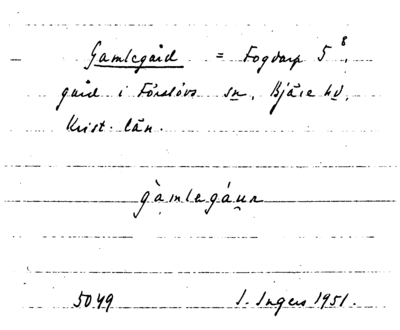 Gamlegård = Fogdarp 5⁸,
gård i Förslövs sn, Bjäre hd,
Krist. län.
gàmlegáun
5049 I. Ingers 1951.